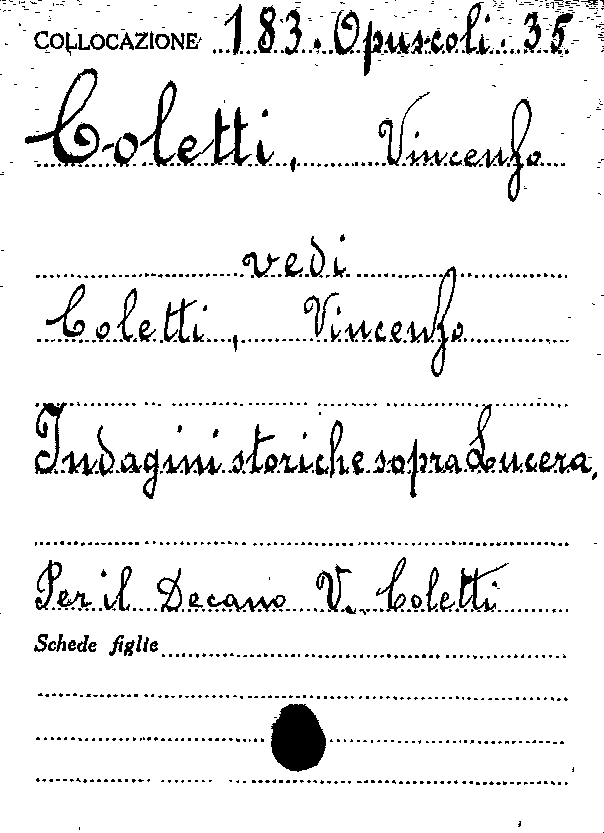 COLLOCAZIONE 183. Opuscoli. 35
Coletti, Vincenzo
vedi
Coletti, Vincenzo
Indagini storiche sopra Lucera.
Per il Decano V. Coletti
Schede figlie